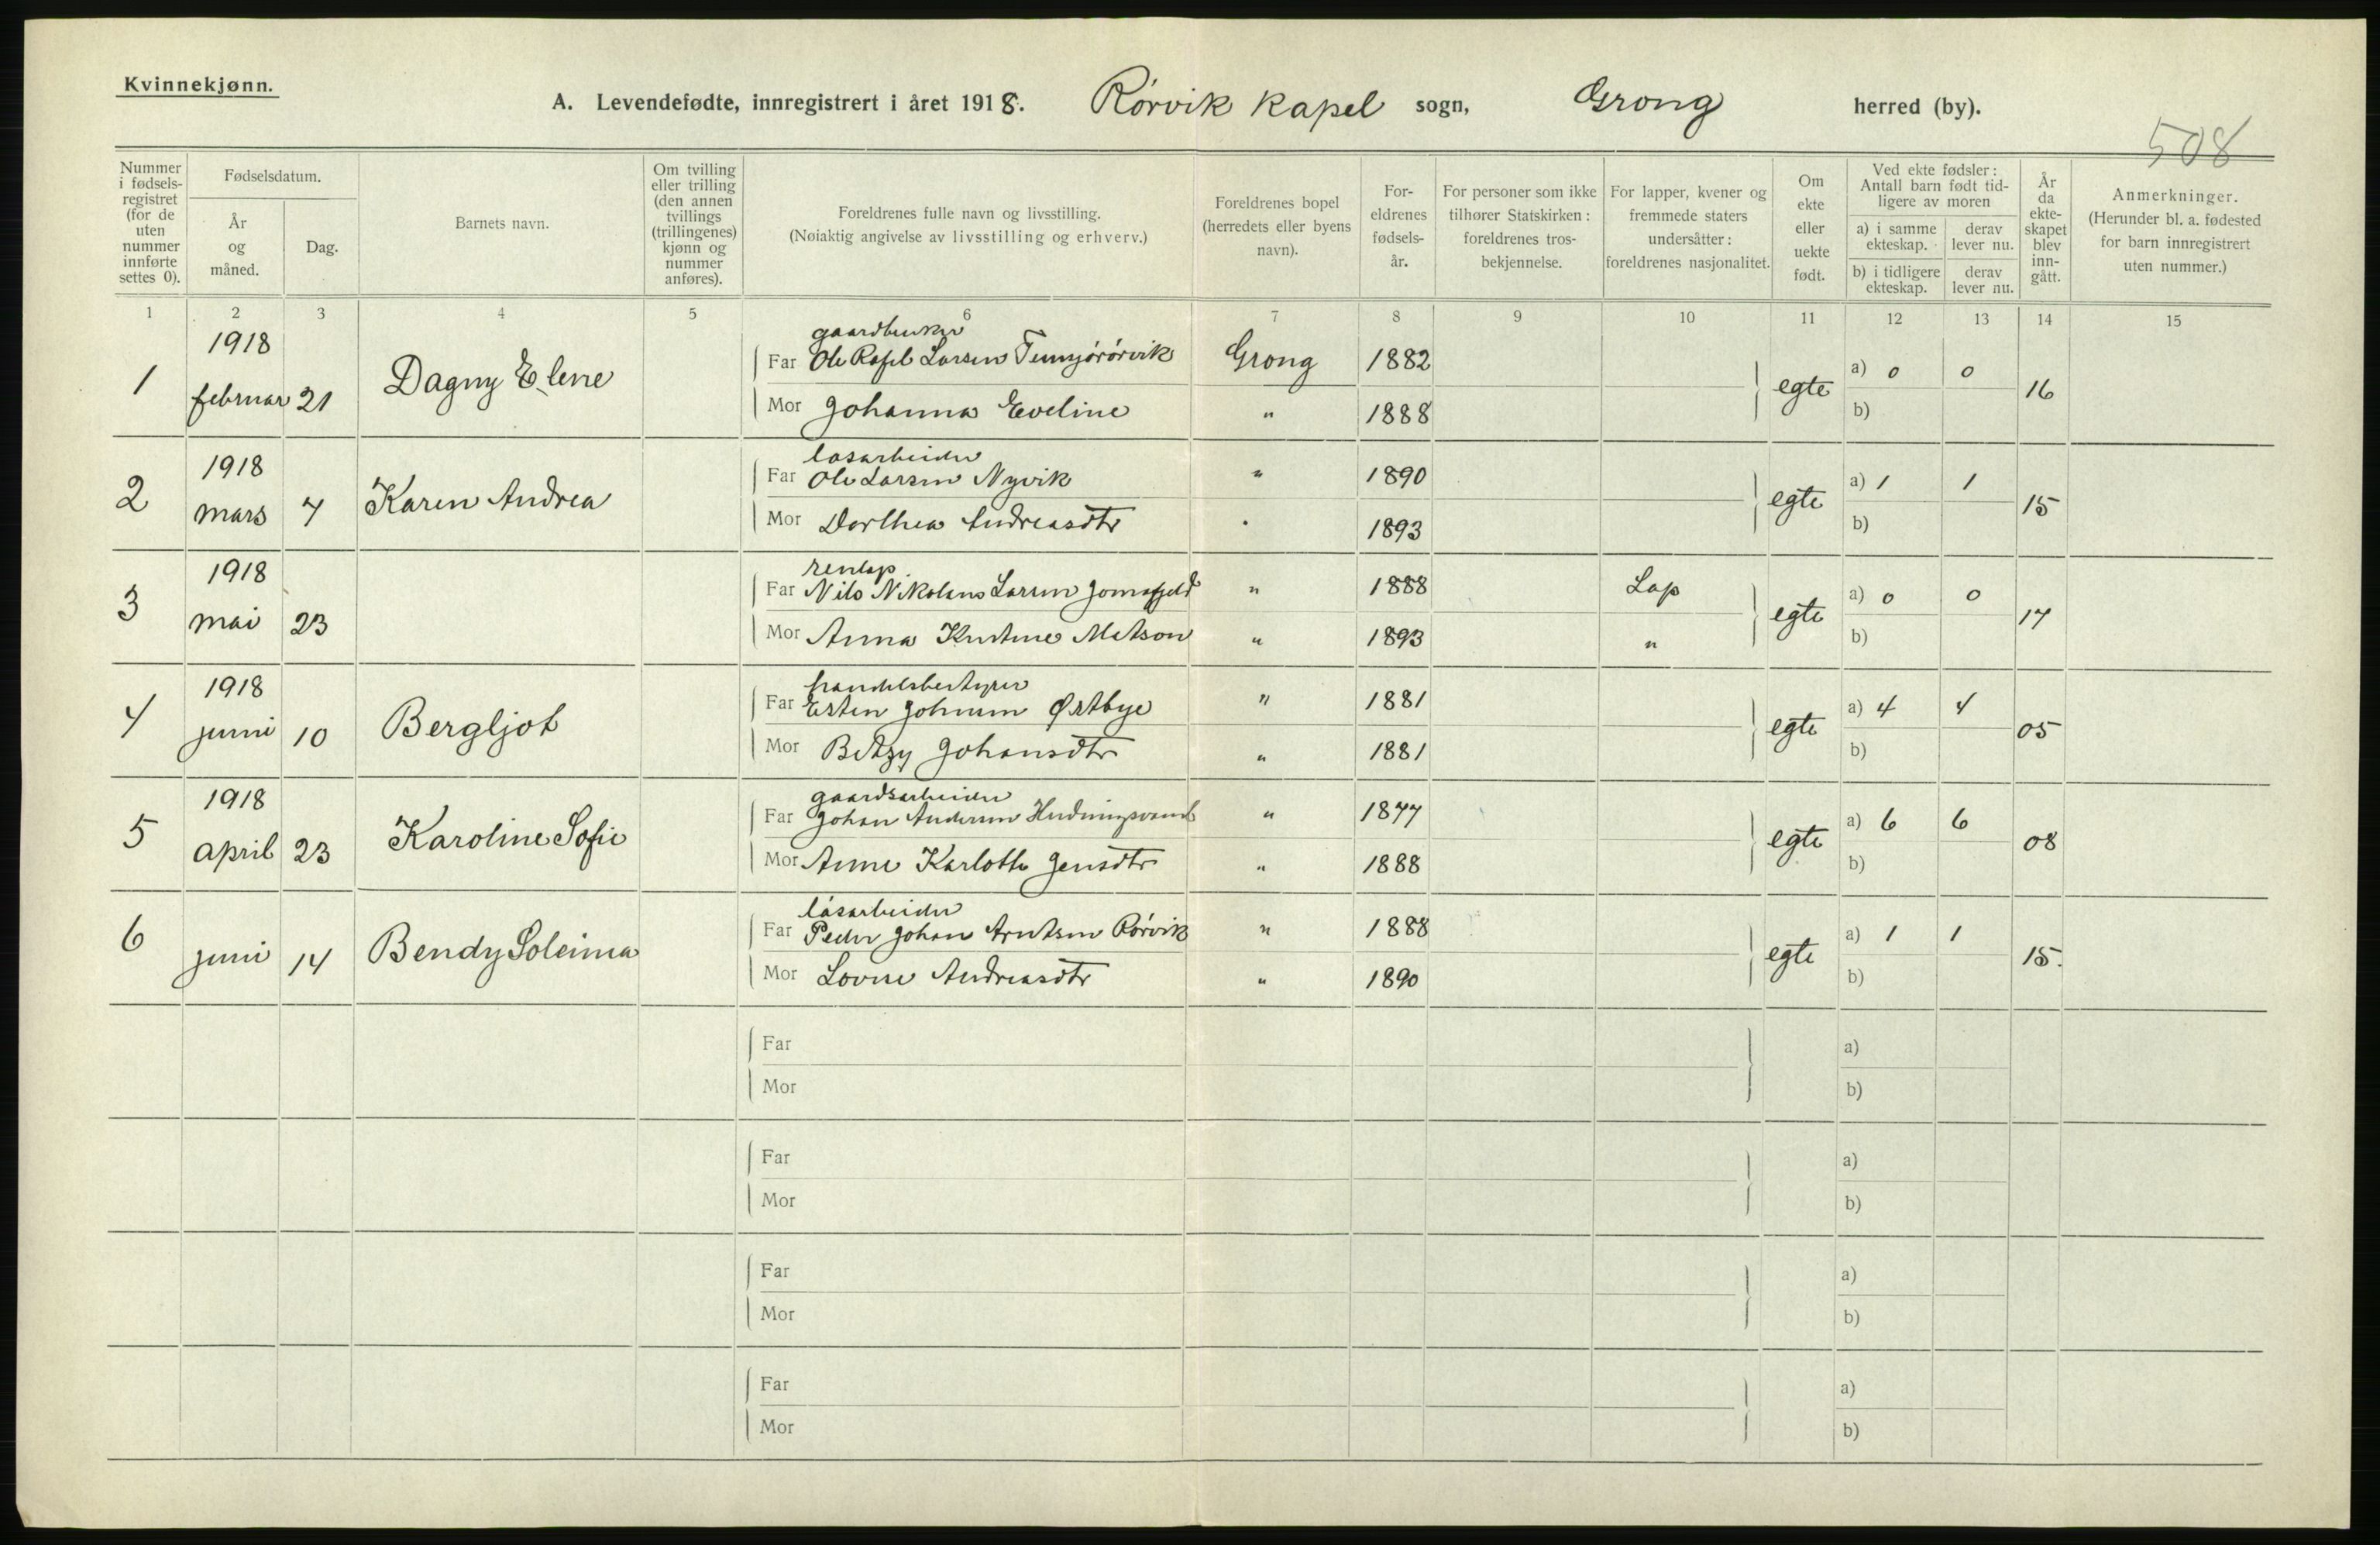 Kvinnekjønn.
A. Levendefødte, innregistrert i året 1918. Rørvik Kapel sogn, Grong herred (by).
508
Nummer i fødselsregistret (for de uten nummer innførte settes 0).
Fødselsdatum.
År og måned.
Dag.
Barnets navn.
Om tvilling eller trilling (den annen tvillings (trillingenes) kjønn og nummer anføres).
Foreldrenes fulle navn og livsstilling.
(Nøiaktig angivelse av livsstilling og erhverv.)
Foreldrenes bopel (herredets eller byens navn).
Foreldrenes fødselsår.
For personer som ikke tilhører Statskirken: foreldrenes trosbekjennelse.
For lapper, kvener og fremmede staters undersåtter: foreldrenes nasjonalitet.
Om ekte eller uekte født.
Ved ekte fødsler: Antall barn født tidligere av moren
a) i samme ekteskap. derav lever nu.
b) i tidligere ekteskap. derav lever nu.
År da ekteskapet blev inngått.
Anmerkninger.
(Herunder bl. a. fødested for barn innregistrert uten nummer.)
1 2 3 4 5 6 7 8 9 10 11 12 13 14 15
1918 gaardbruker
1 februar 21 Dagny Elene Far Ole Rafel Larsen Grong 1882 egte a) 0 0 16
Mor Johanna Eveline " 1888 b)
1918 løsarbeider
2 mars 7 Karen Andrea Far Ole Larsen Nyvik " 1890 egte a) 1 1 15
Mor Dorthea Andreasdtr " 1893 b)
1918 renlap
3 mai 23 Far Nils Nikolaus Larsen Jomafjeld " 1888 Lap egte a) 0 0 17
Mor Anna Kristine Matson " 1893 " b)
1918 handelsbestyrer
4 juni 10 Bergljot Far Esten Johnsen Østbye " 1881 egte a) 4 4 05
Mor Betzy Johansdtr " 1881 b)
1918 gaardsarbeider
5 april 23 Karoline Sofie Far Johan Andersen " 1877 egte a) 6 6 08
Mor Anne Karlotte Jensdtr " 1888 b)
løsarbeider
6 juni 14 Bendy Soleima Far Peder Johan Arntsen Rørvik " 1888 egte a) 1 1 15.
Mor Lovise Andreasdtr " 1890 b)
Far a)
Mor b)
Far a)
Mor b)
Far a)
Mor b)
Far a)
Mor b)